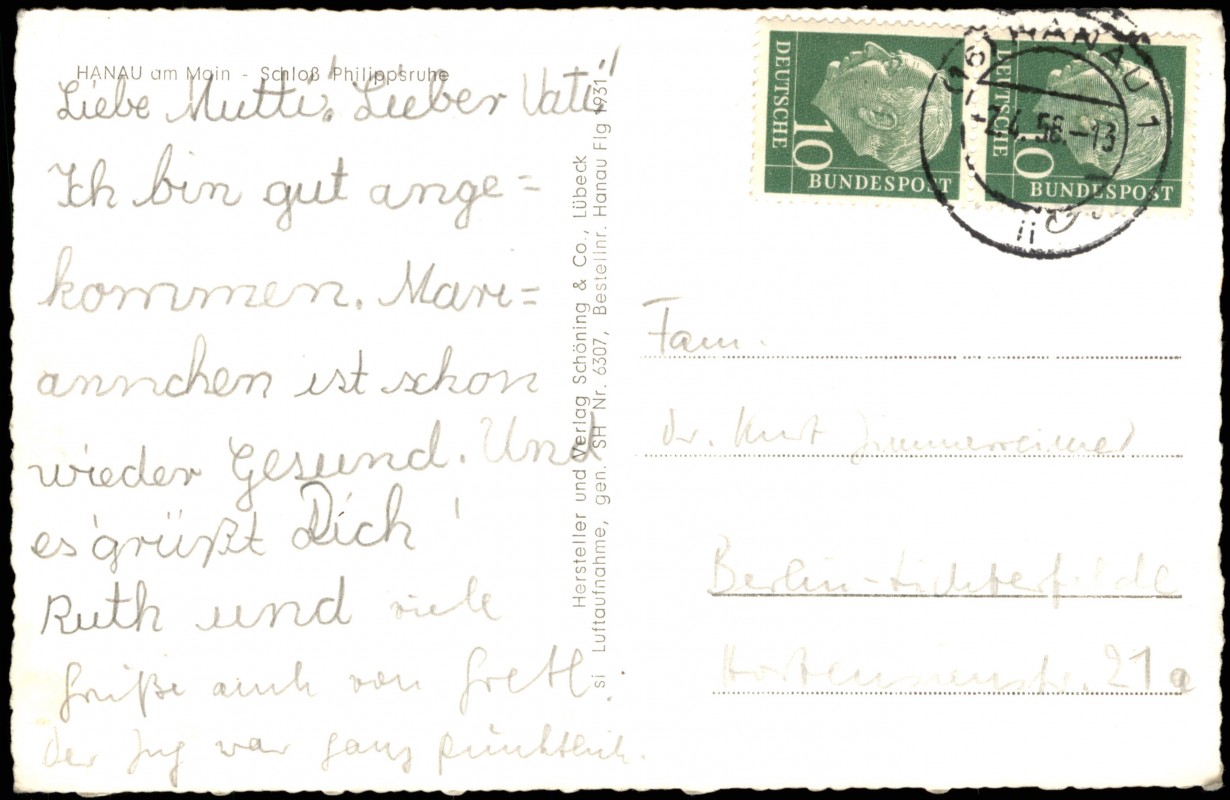 HANAU am Main - Schloß Philippsruhe
Liebe Mutti, Lieber Vati!
Ich bin gut ange=
kommen. Mari=
annchen ist schon
wieder Gesund. Und
es grüßt Dich
Ruth und viele
Grüße auch von Gretl.
Der Zug war ganz pünktlich.
Hersteller und Verlag Schöning & Co., Lübeck
si Luftaufnahme, gen. SH Nr. 6307, Bestellnr. Hanau Flg 1931
DEUTSCHE
10
BUNDESPOST
DEUTSCHE
10
BUNDESPOST
(16) HANAU 1
-2.4.56.-13
Fam.
Dr. Kurt
Berlin-Lichterfelde
Hortensienstr. 21a